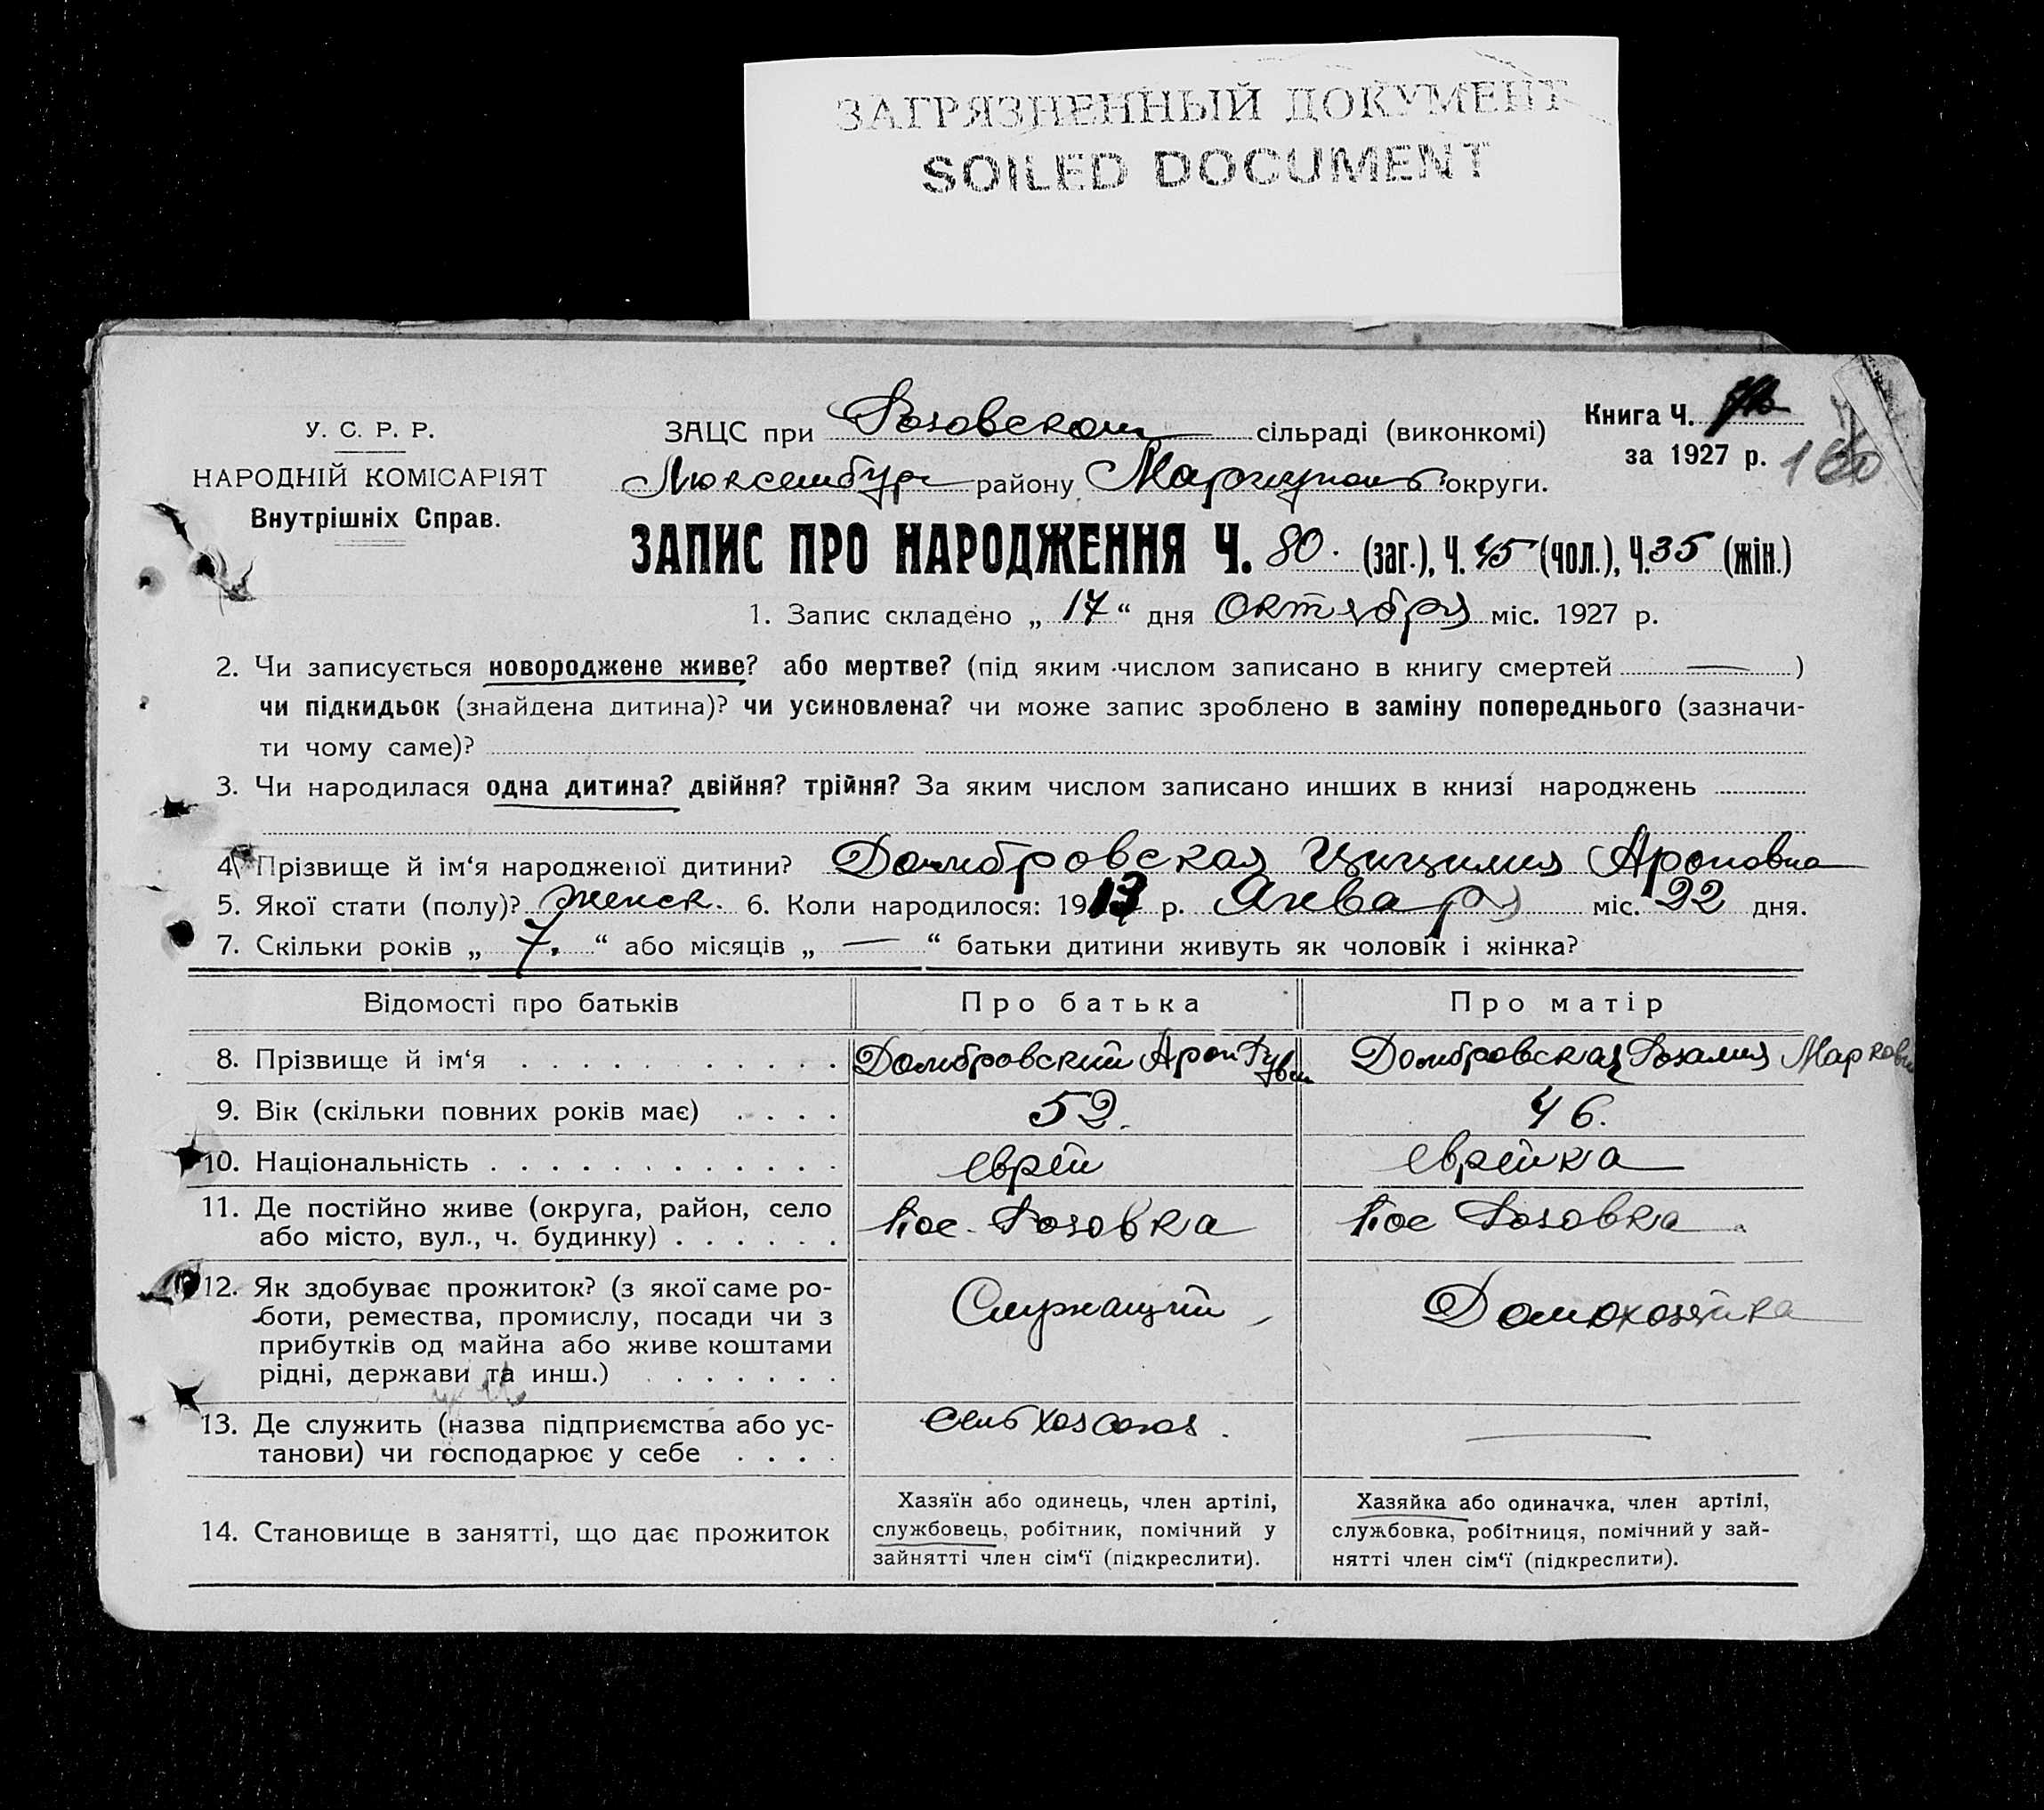 ЗАГРЯЗНЕННЫЙ ДОКУМЕНТ
SOILED DOCUMENT
У. С. Р. Р.
НАРОДНІЙ КОМІСАРІЯТ
Внутрішніх Справ.
ЗАЦС при Розовском сільраді (виконкомі)
Книга Ч.
за 1927 р. 160
Люксембург району Мариуполь округи.
ЗАПИС ПРО НАРОДЖЕННЯ Ч. 80. (заг.), Ч. 45 (чол.), Ч. 35 (жін.)
1. Запис складено „ 17 “ дня Октября міс. 1927 р.
2. Чи записується новороджене живе? або мертве? (під яким числом записано в книгу смертей — )
чи підкидьок (знайдена дитина)? чи усиновлена? чи може запис зроблено в заміну попереднього (зазначи-
ти чому саме)?
3. Чи народилася одна дитина? двійня? трійня? За яким числом записано инших в книзі народжень
4. Прізвище й ім‘я народженої дитини? Домбровская Цицилия Ароновна
5. Якої стати (полу)? женск. 6. Коли народилося: 1913 р. Января міс. 22 дня.
7. Скільки років „ 7. “ або місяців „ — “ батьки дитини живуть як чоловік і жінка?
Відомості про батьків Про батька Про матір
8. Прізвище й ім‘я Домбровский Арон Домбровская Розалия Марковн
9. Вік (скільки повних років має) 52. 46.
10. Національність еврей еврейка
11. Де постійно живе (округа, район, село
або місто, вул., ч. будинку) Пос. Розовка Пос Розовка
12. Як здобуває прожиток? (з якої саме ро-
боти, ремества, промислу, посади чи з
прибутків од майна або живе коштами
рідні, держави та инш.) Служащий Домохозяйка
13. Де служить (назва підприємства або ус-
танови) чи господарює у себе Сельхозсоюз. —
14. Становище в занятті, що дає прожиток
Хазяїн або одинець, член артілі,
службовець, робітник, помічний у
зайнятті член сім‘ї (підкреслити).
Хазяйка або одиначка, член артілі,
службовка, робітниця, помічний у зай-
нятті член сім‘ї (підкреслити).